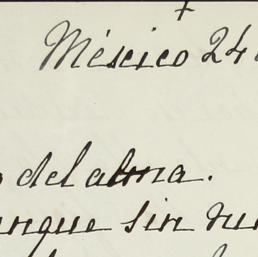 +
México 24
del alma.
unque sin